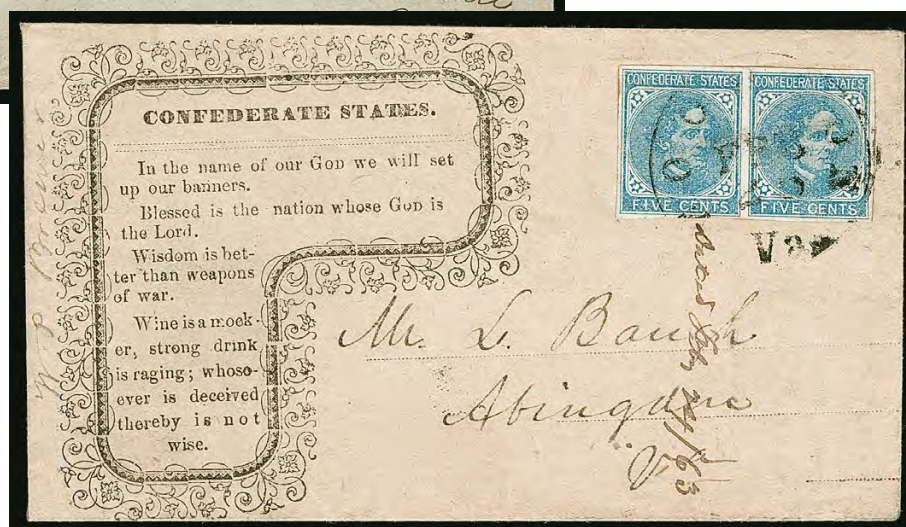 CONFEDERATE STATES.
In the name of our GOD we will set
up our banners.
Blessed is the nation whose GOD is
the Lord.
Wisdom is bet-
ter than weapons
of war.
Wine is a mock-
er, strong drink
is raging; whoso-
ever is deceived
thereby is not
wise.
CONFEDERATE STATES
FIVE CENTS
CONFEDERATE STATES
FIVE CENTS
Va
Mr. L. Baugh
Abingdon
Va
Feb 24/63